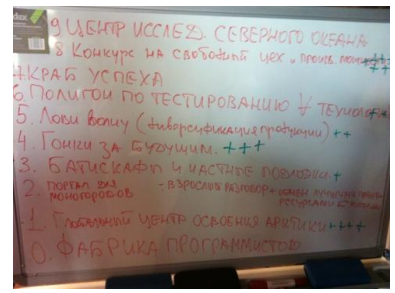 9 ЦЕНТР ИССЛЕД. СЕВЕРНОГО ОКЕАНА
8 Конкурс на свободный цех и произв. ++
++
7. КРАБ УСПЕХА
6. ПОЛИГОН ПО ТЕСТИРОВАНИЮ ∀ ТЕХНОЛОГ +
5. Лови волну (диверсификация продукции) ++
4. Гонки за будущим. +++
3. БАТИСКАФЫ И ЧАСТНЫЕ ПОДЛОДКИ +
2. ПОРТАЛ ДЛЯ МОНОГОРОДОВ - ВЗРОСЛЫЙ РАЗГОВОР +
1. Глобальный ЦЕНТР ОСВОЕНИЯ АРКТИКИ ++++
0. ФАБРИКА ПРОГРАММИСТОВ